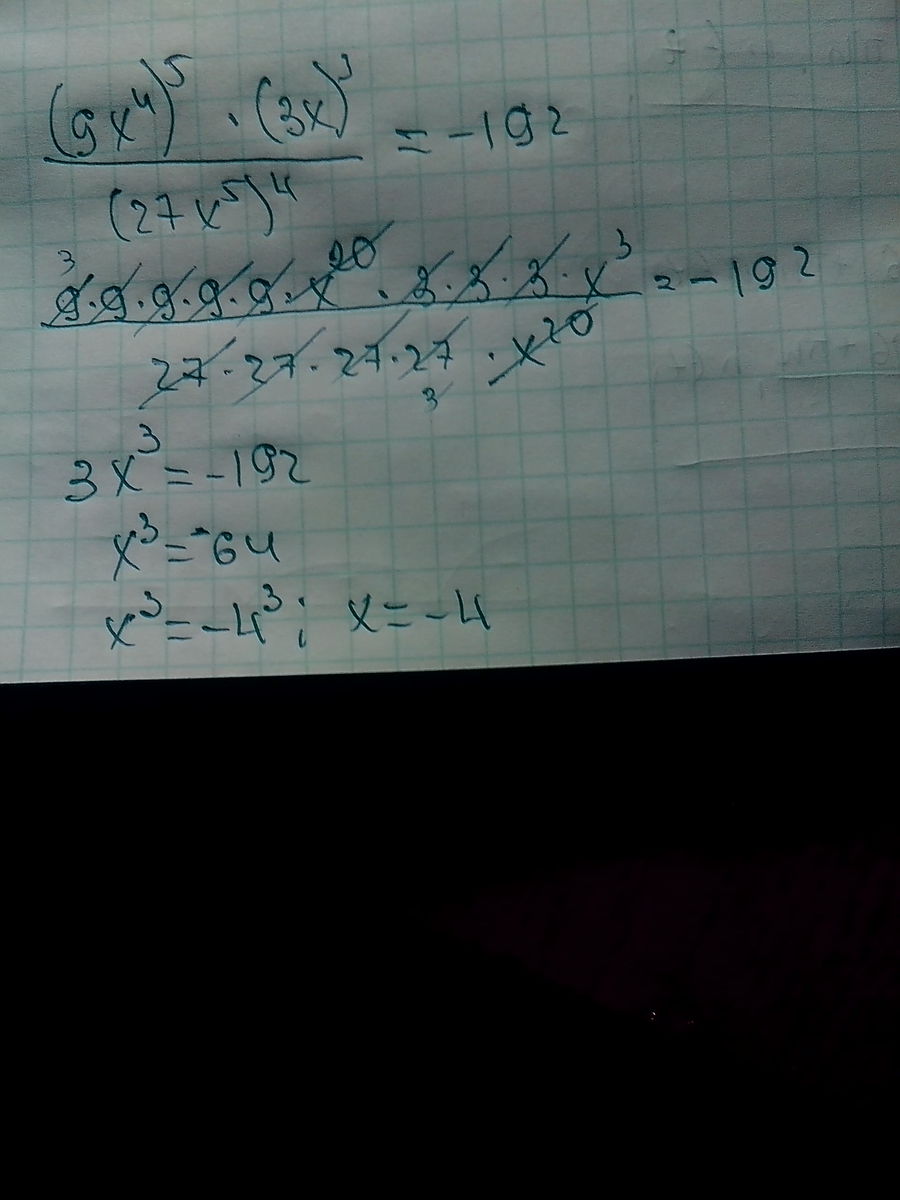 (9x⁴)⁵ · (3x)³ / (27x⁵)⁴ = -192
3
9·9·9·9·9·x²⁰ · 3·3·3·x³ / 27·27·27·27·x²⁰ = -192
3
3x³ = -192
x³ = -64
x³ = -4³; x = -4